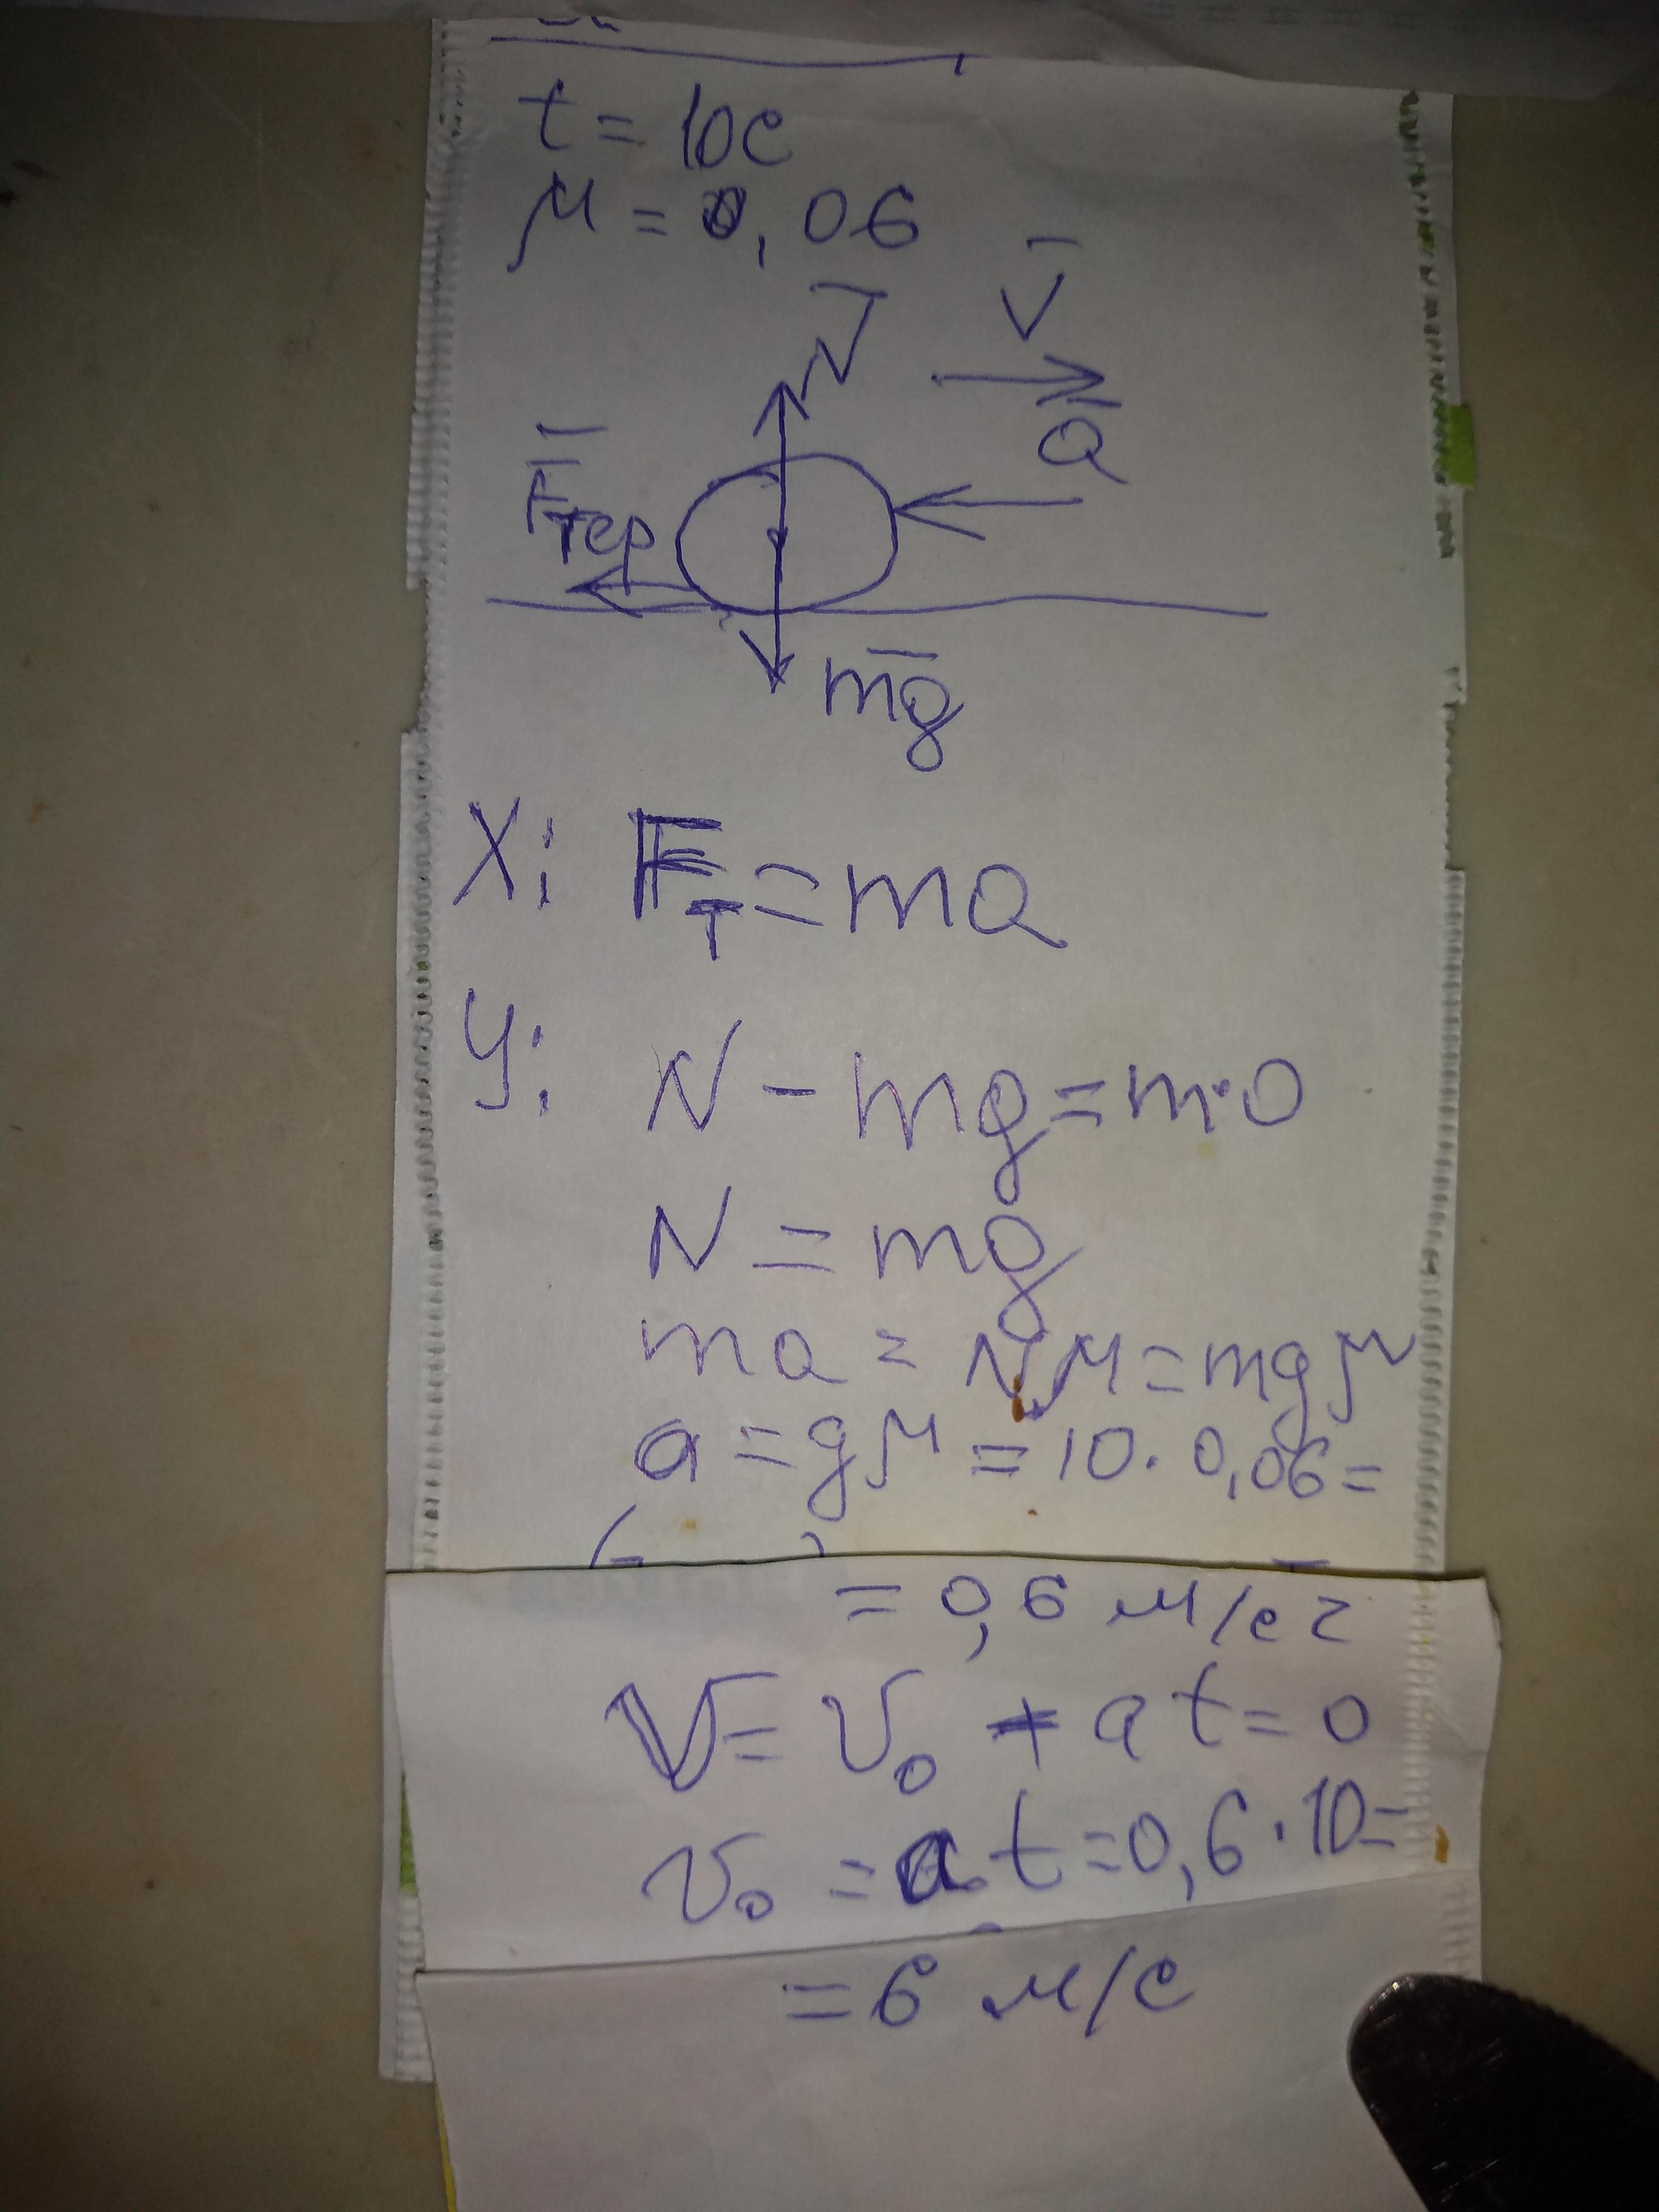 t = 10c
μ = 0,06
N̄ V̄
F̄тер ā
mḡ
X: Fт = ma
y: N - mg = m·0
N = mg
ma = Nμ = mgμ
a = gμ = 10 · 0,06 =
= 0,6 м/с2
V = v₀ + at = 0
v₀ = at = 0,6 · 10 =
= 6 м/с